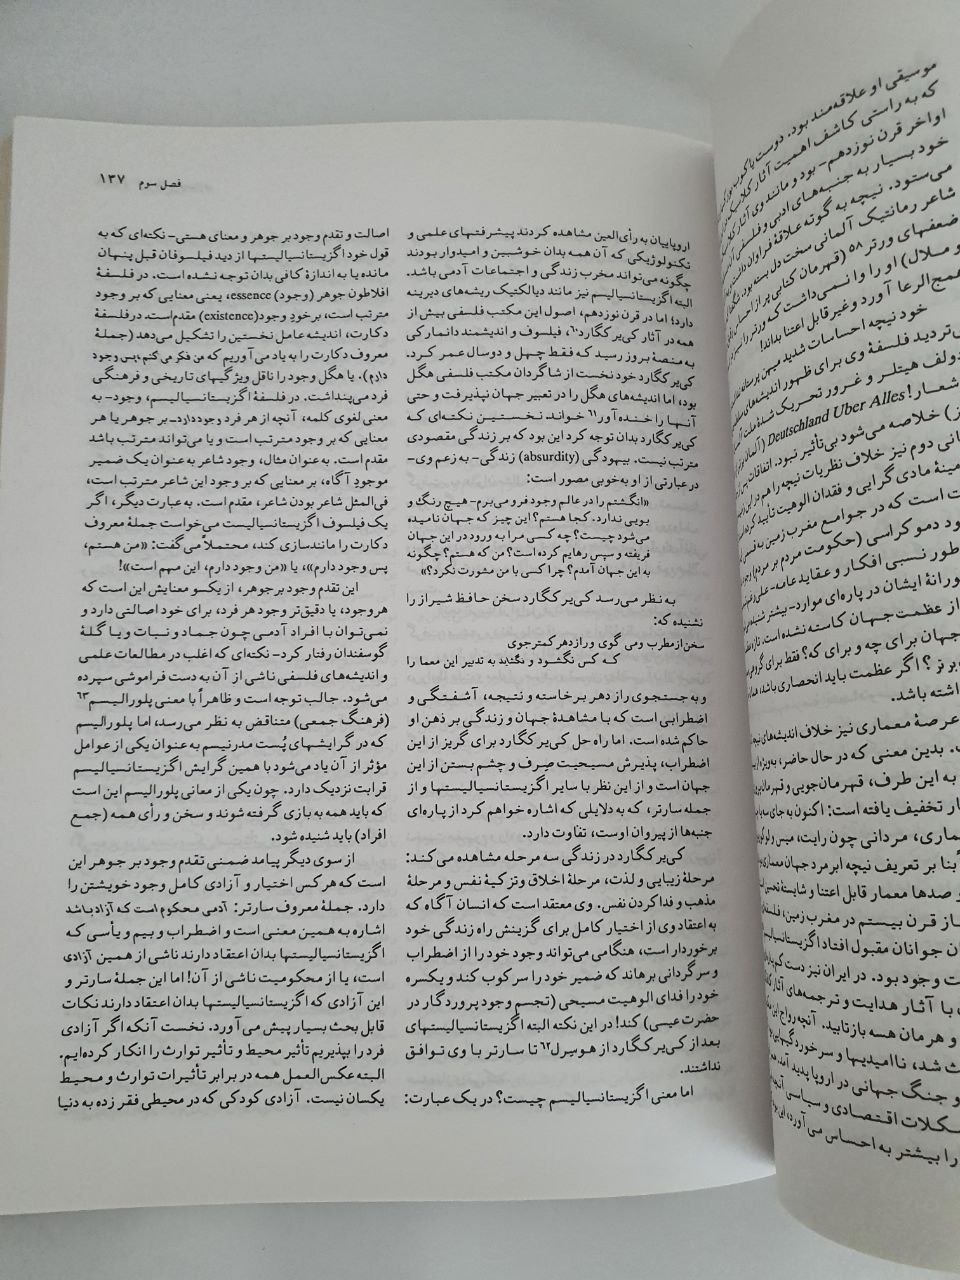 فصل سوم ۱۳۷
اروپاییان به رأی‌العین مشاهده کردند پیشرفتهای علمی و
تکنولوژیکی که آن همه بدان خوشبین و امیدوار بودند
چگونه می‌تواند مخرب زندگی و اجتماعات آدمی باشد.
البته اگزیستانسیالیسم نیز مانند دیالکتیک ریشه‌های دیرینه
دارد؛ اما در قرن نوزدهم، اصول این مکتب فلسفی بیش از
همه در آثار کی‌یرکگارد۶۰، فیلسوف و اندیشمند دانمارکی
به منصهٔ بروز رسید که فقط چهل و دوسال عمر کرد.
کی‌یرکگارد خود نخست از شاگردان مکتب فلسفی هگل
بود، اما اندیشه‌های هگل را در تعبیر جهان نپذیرفت و حتی
آنها را خنده‌آور۶۱ خواند. نخستین نکته‌ای که
کی‌یرکگارد بدان توجه کرد این بود که بر زندگی مقصودی
مترتب نیست. بیهودگی (absurdity) زندگی- به زعم وی-
در عبارتی از او به‌خوبی مصور است:
«انگشتم را در عالم وجود فرو می‌برم- هیچ رنگ و
بویی ندارد. کجا هستم؟ این چیز که جهان نامیده
می‌شود چیست؟ چه کسی مرا به ورود در این جهان
فریفته و سپس رهایم کرده است؟ من که هستم؟ چگونه
به این جهان آمدم؟ چرا کسی با من مشورت نکرد؟»
به نظر می‌رسد کی‌یرکگارد سخن حافظ شیراز را
نشنیده که:
سخن از مطرب ومی گوی و راز دهر کمتر جوی
که کس نگشود و نگشاید به تدبیر این معما را
و به جستجوی راز دهر برخاسته و نتیجه، آشفتگی و
اضطرابی است که با مشاهدهٔ جهان و زندگی بر ذهن او
حاکم شده است. اما راه حل کی‌یرکگارد برای گریز از این
اضطراب، پذیرش مسیحیت صِرف و چشم بستن از این
جهان است و از این نظر با سایر اگزیستانسیالیستها و از
جمله سارتر، به دلایلی که اشاره خواهم کرد از پاره‌ای
جنبه‌ها از پیروان اوست، تفاوت دارد.
کی‌یرکگارد در زندگی سه مرحله مشاهده می‌کند:
مرحلهٔ زیبایی و لذت، مرحلهٔ اخلاق وتزکیهٔ نفس و مرحلهٔ
مذهب و فدا کردن نفس. وی معتقد است که انسان آگاه که
به اعتقاد وی از اختیار کامل برای گزینش راه زندگی خود
برخوردار است، هنگامی می‌تواند وجود خود را از اضطراب
و سرگردانی برهاند که ضمیر خود را سرکوب کند و یکسره
خود را فدای الوهیت مسیحی (تجسم وجود پروردگار در
حضرت عیسی) کند! در این نکته البته اگزیستانسیالیستهای
بعد از کی‌یرکگارد از هوسرل۶۲ تا سارتر با وی توافق
نداشتند.
اما معنی اگزیستانسیالیسم چیست؟ در یک عبارت:
اصالت و تقدم وجود بر جوهر و معنای هستی- نکته‌ای که به
قول خود اگزیستانسیالیستها از دید فیلسوفان قبل پنهان
مانده یا به اندازهٔ کافی بدان توجه نشده است. در فلسفهٔ
افلاطون جوهر (وجود) essence، یعنی معنایی که بر وجود
مترتب است، برخودِ وجود (existence) مقدم است. در فلسفهٔ
دکارت، اندیشه عامل نخستین را تشکیل می‌دهد (جملهٔ
معروف دکارت را به یاد می‌آوریم که من فکر می‌کنم، پس وجود
دارم). یا هگل وجود را ناقل ویژگیهای تاریخی و فرهنگی
فرد می‌پنداشت. در فلسفهٔ اگزیستانسیالیسم، وجود- به
معنی لغوی کلمه، آنچه از هر فرد وجود دارد- بر جوهر یا هر
معنایی که بر وجود مترتب است و یا می‌تواند مترتب باشد
مقدم است. به‌عنوان مثال، وجود شاعر به‌عنوان یک ضمیر
موجودِ آگاه، بر معنایی که بر وجود این شاعر مترتب است،
فی‌المثل شاعر بودن شاعر، مقدم است. به‌عبارت دیگر، اگر
یک فیلسوف اگزیستانسیالیست می‌خواست جملهٔ معروف
دکارت را مانندسازی کند، محتملاً می‌گفت: «من هستم،
پس وجود دارم»، یا «من وجود دارم، این مهم است»!
این تقدم وجود بر جوهر، از یکسو معنایش این است که
هر وجود، یا دقیق‌تر وجود هر فرد، برای خود اصالتی دارد و
نمی‌توان با افراد آدمی چون جماد و نبات و یا گلهٔ
گوسفندان رفتار کرد- نکته‌ای که اغلب در مطالعات علمی
و اندیشه‌های فلسفی ناشی از آن به دست فراموشی سپرده
می‌شود. جالب توجه است و ظاهراً با معنی پلورالیسم۶۳
(فرهنگ جمعی) متناقض به نظر می‌رسد، اما پلورالیسم
که در گرایشهای پُست مدرنیسم به‌عنوان یکی از عوامل
مؤثر از آن یاد می‌شود با همین گرایش اگزیستانسیالیسم
قرابت نزدیک دارد. چون یکی از معانی پلورالیسم این است
که باید همه به بازی گرفته شوند و سخن و رأی همه (جمع
افراد) باید شنیده شود.
از سوی دیگر پیامد ضمنی تقدم وجود بر جوهر این
است که هر کس اختیار و آزادی کامل وجود خویشتن را
دارد. جملهٔ معروف سارتر: آدمی محکوم است که آزاد باشد
اشاره به همین معنی است و اضطراب و بیم و یأسی که
اگزیستانسیالیستها بدان اعتقاد دارند ناشی از همین آزادی
است، یا از محکومیت ناشی از آن! اما این جملهٔ سارتر و
این آزادی که اگزیستانسیالیستها بدان اعتقاد دارند نکات
قابل بحث بسیار پیش می‌آورد. نخست آنکه اگر آزادی
فرد را بپذیریم تأثیر محیط و تأثیر توارث را انکار کرده‌ایم.
البته عکس‌العمل همه در برابر تأثیرات توارث و محیط
یکسان نیست. آزادی کودکی که در محیطی فقر زده به دنیا
موسیقی او علاقه‌مند بود. دوست
که به راستی کاشف اهمیت آثار
اواخر قرن نوزدهم- بود و مانند وی آثار
خود بسیار به جنبه‌های ادبی و فلسفی
می‌ستود. نیچه به گوته علاقهٔ فراوان داشت
شاعر رمانتیک آلمانی سخت دل بسته بود
ضعفهای ورتر۵۸ (قهرمان کتابی
و ملال) او را وا نمی‌داشت که ورتر را
همج‌الرعا آورد و غیر قابل اعتنا بداند!
خود نیچه احساسات شدید میهن پرستانه
تردید فلسفهٔ وی برای ظهور اندیشه‌های
دولف هیتلر و غرور تحریک شدهٔ ملت
شعار! Deutschland Uber Alles
خلاصه می‌شود بی‌تأثیر نبود. اتفاقات
نی دوم نیز خلاف نظریات نیچه را
مینهٔ مادی‌گرایی و فقدان الوهیت تأیید کرد
ت است که در جوامع مغرب زمین
ود دموکراسی (حکومت مردم بر مردم) وجود
طور نسبی افکار و عقاید عامه-
ورانهٔ ایشان در پاره‌ای موارد- بیشتر
از عظمت جهان کاسته نشده است.
جهان برای چه و برای که؟ فقط برای
برتر؟ اگر عظمت باید انحصاری باشد،
اشته باشد.
عرصهٔ معماری نیز خلاف اندیشه‌های
بدین معنی که در حال حاضر، به‌ویژه
به این طرف، قهرمان‌جویی و
ار تخفیف یافته است: اکنون به جای
ماری، مردانی چون رایت، میس و
بنا بر تعریف نیچه ابرمرد جهان معماری
و صدها معمار قابل اعتنا و شایستهٔ
از قرن بیستم در مغرب زمین،
ن جوانان مقبول افتاد اگزیستانسیالیسم
ت وجود بود. در ایران نیز دست کم
با آثار هدایت و ترجمه‌های
و هرمان هسه بازتابید. آنچه رواج این
ث شد، ناامیدیها و سرخوردگیهایی
و جنگ جهانی در اروپا پدید آمد.
شکلات اقتصادی و سیاسی
را بیشتر به احساس می‌آورد، این